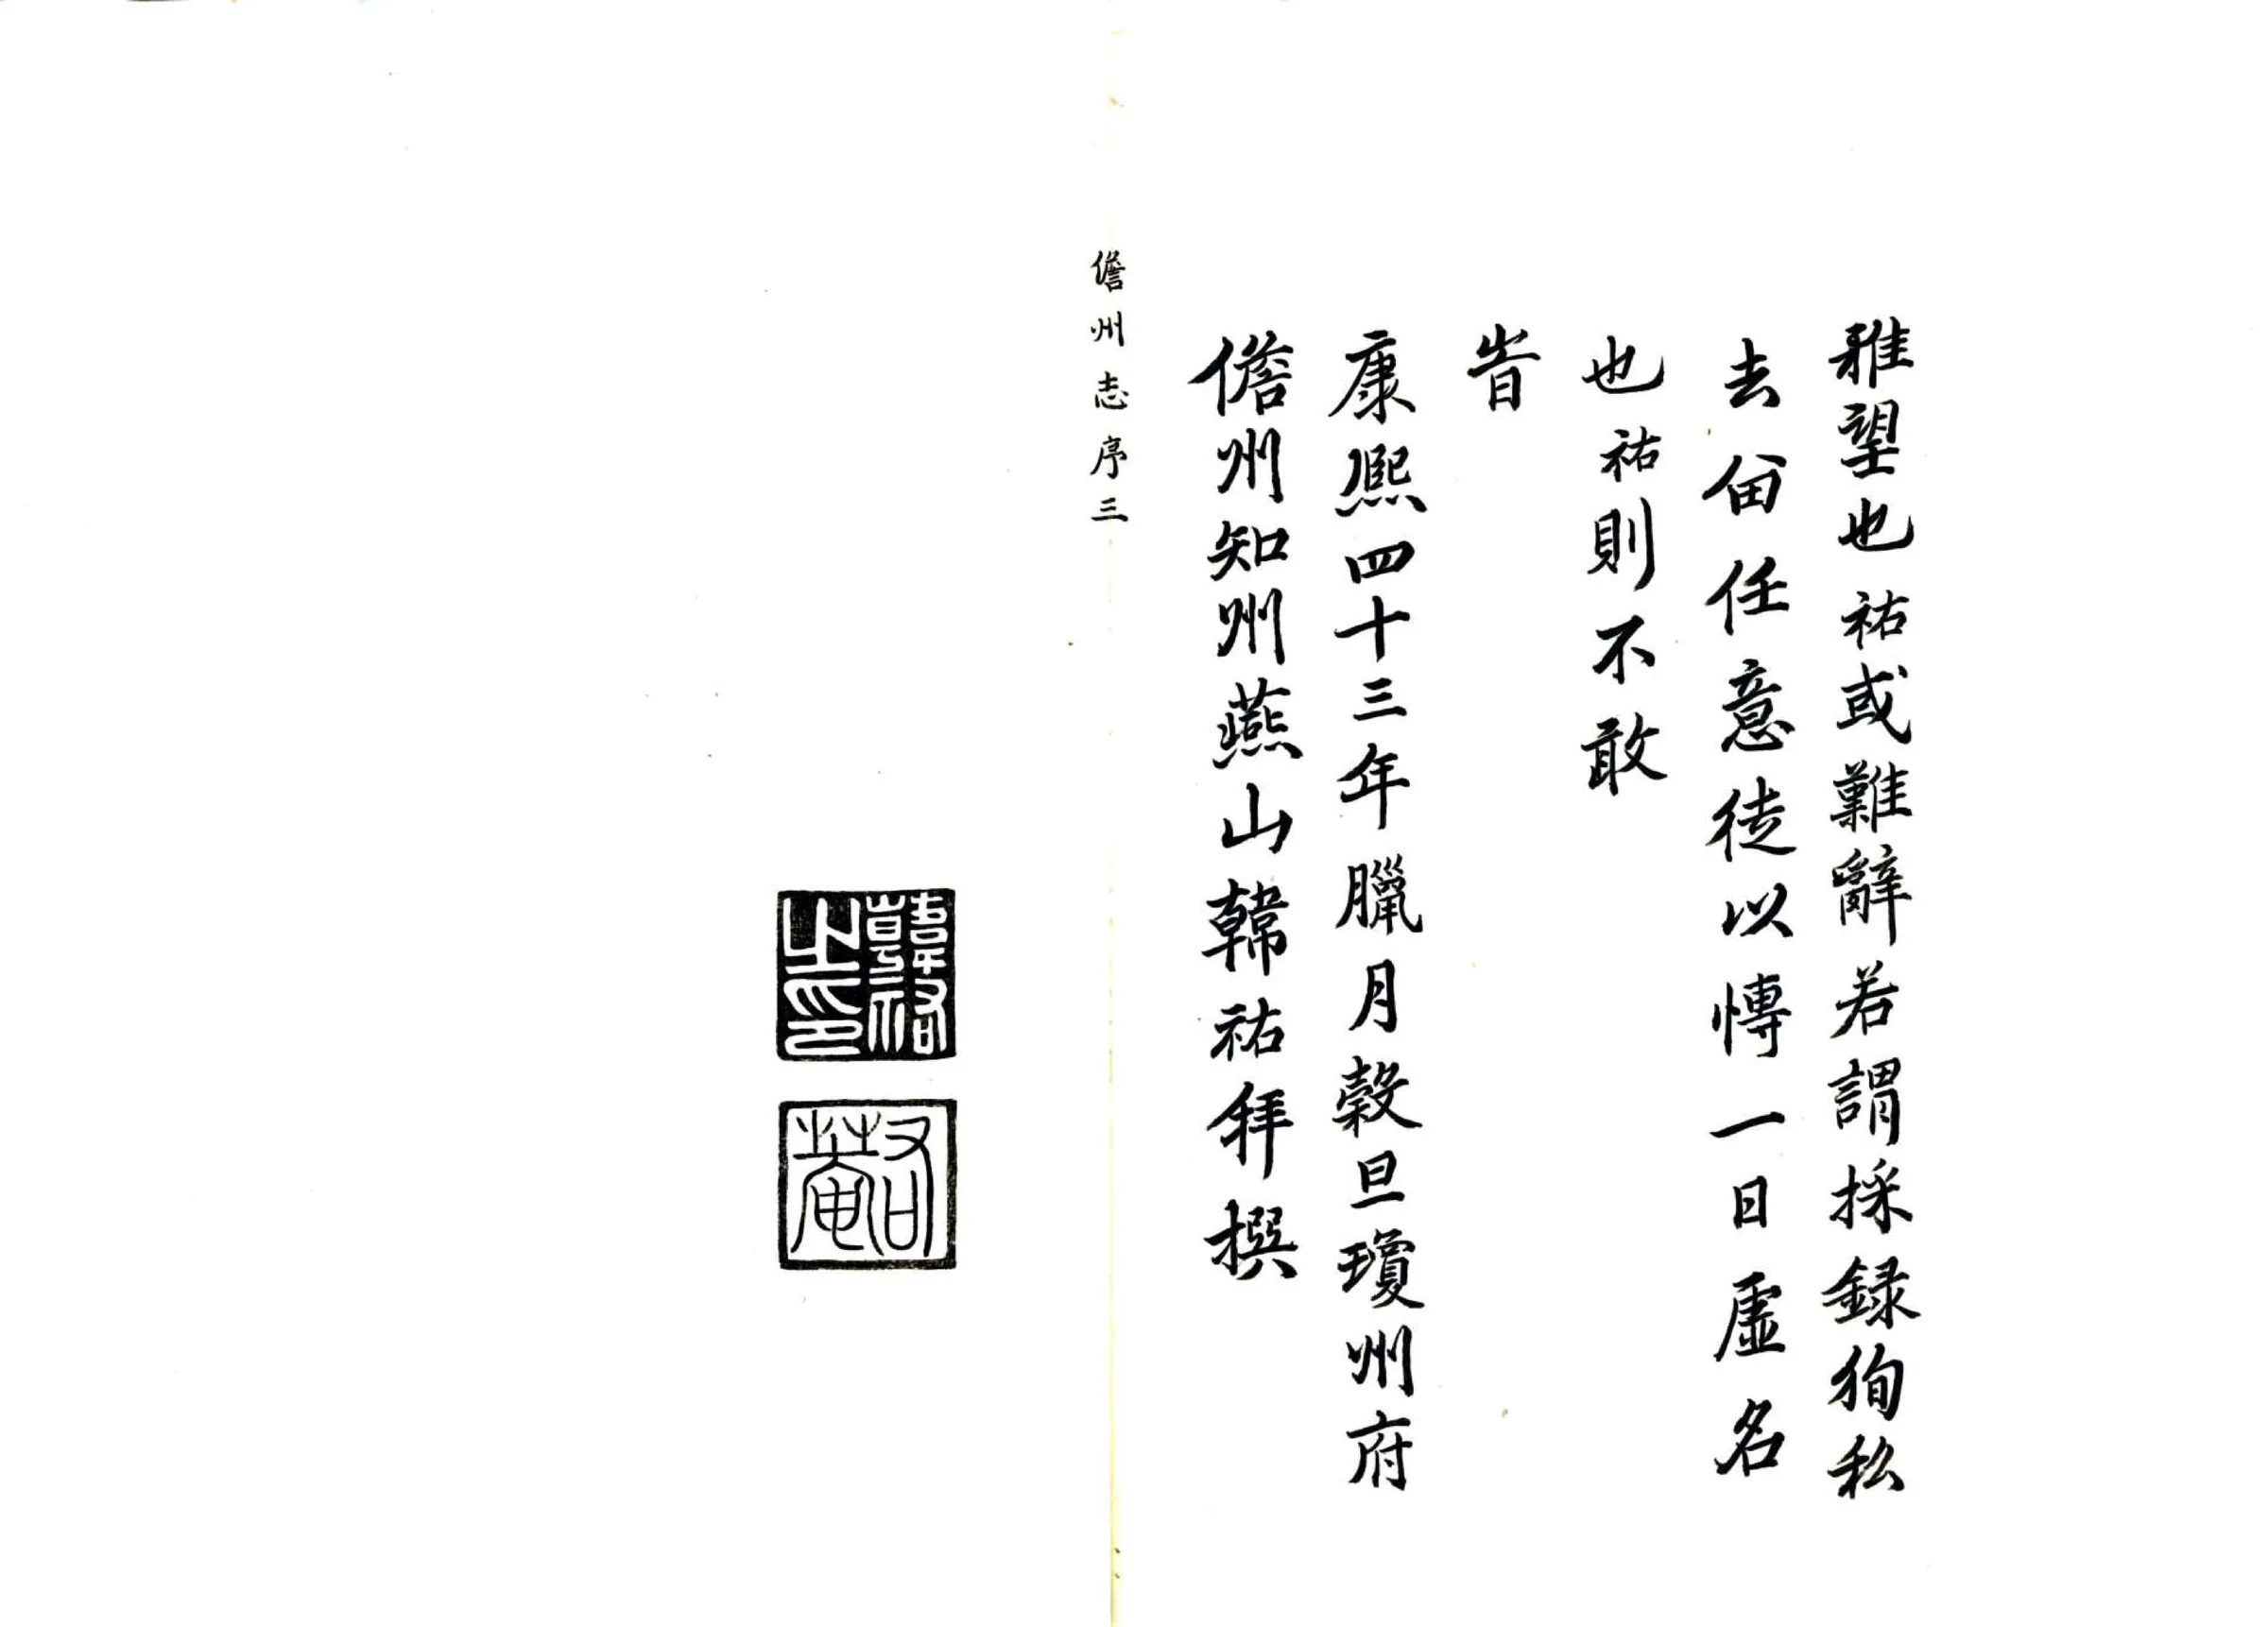 雅望也祐或難辭若謂採録狥私
去畱任意徒以愽一日虛名
也祐則不敢
旹
康熙四十三年臘月穀旦瓊州府
儋州知州燕山韓祐拜撰
儋州志序三
韓祐之印